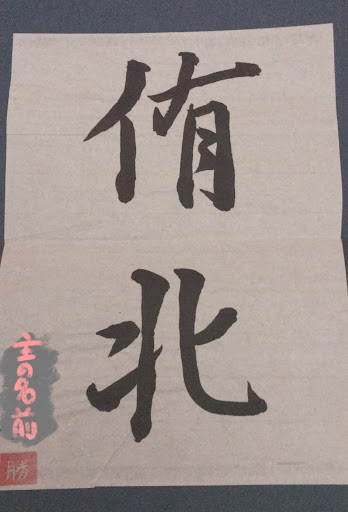 侑
北
主の名前
勝